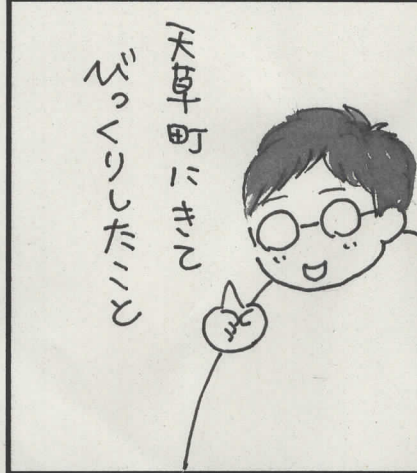 天草町にきて
びっくりしたこと